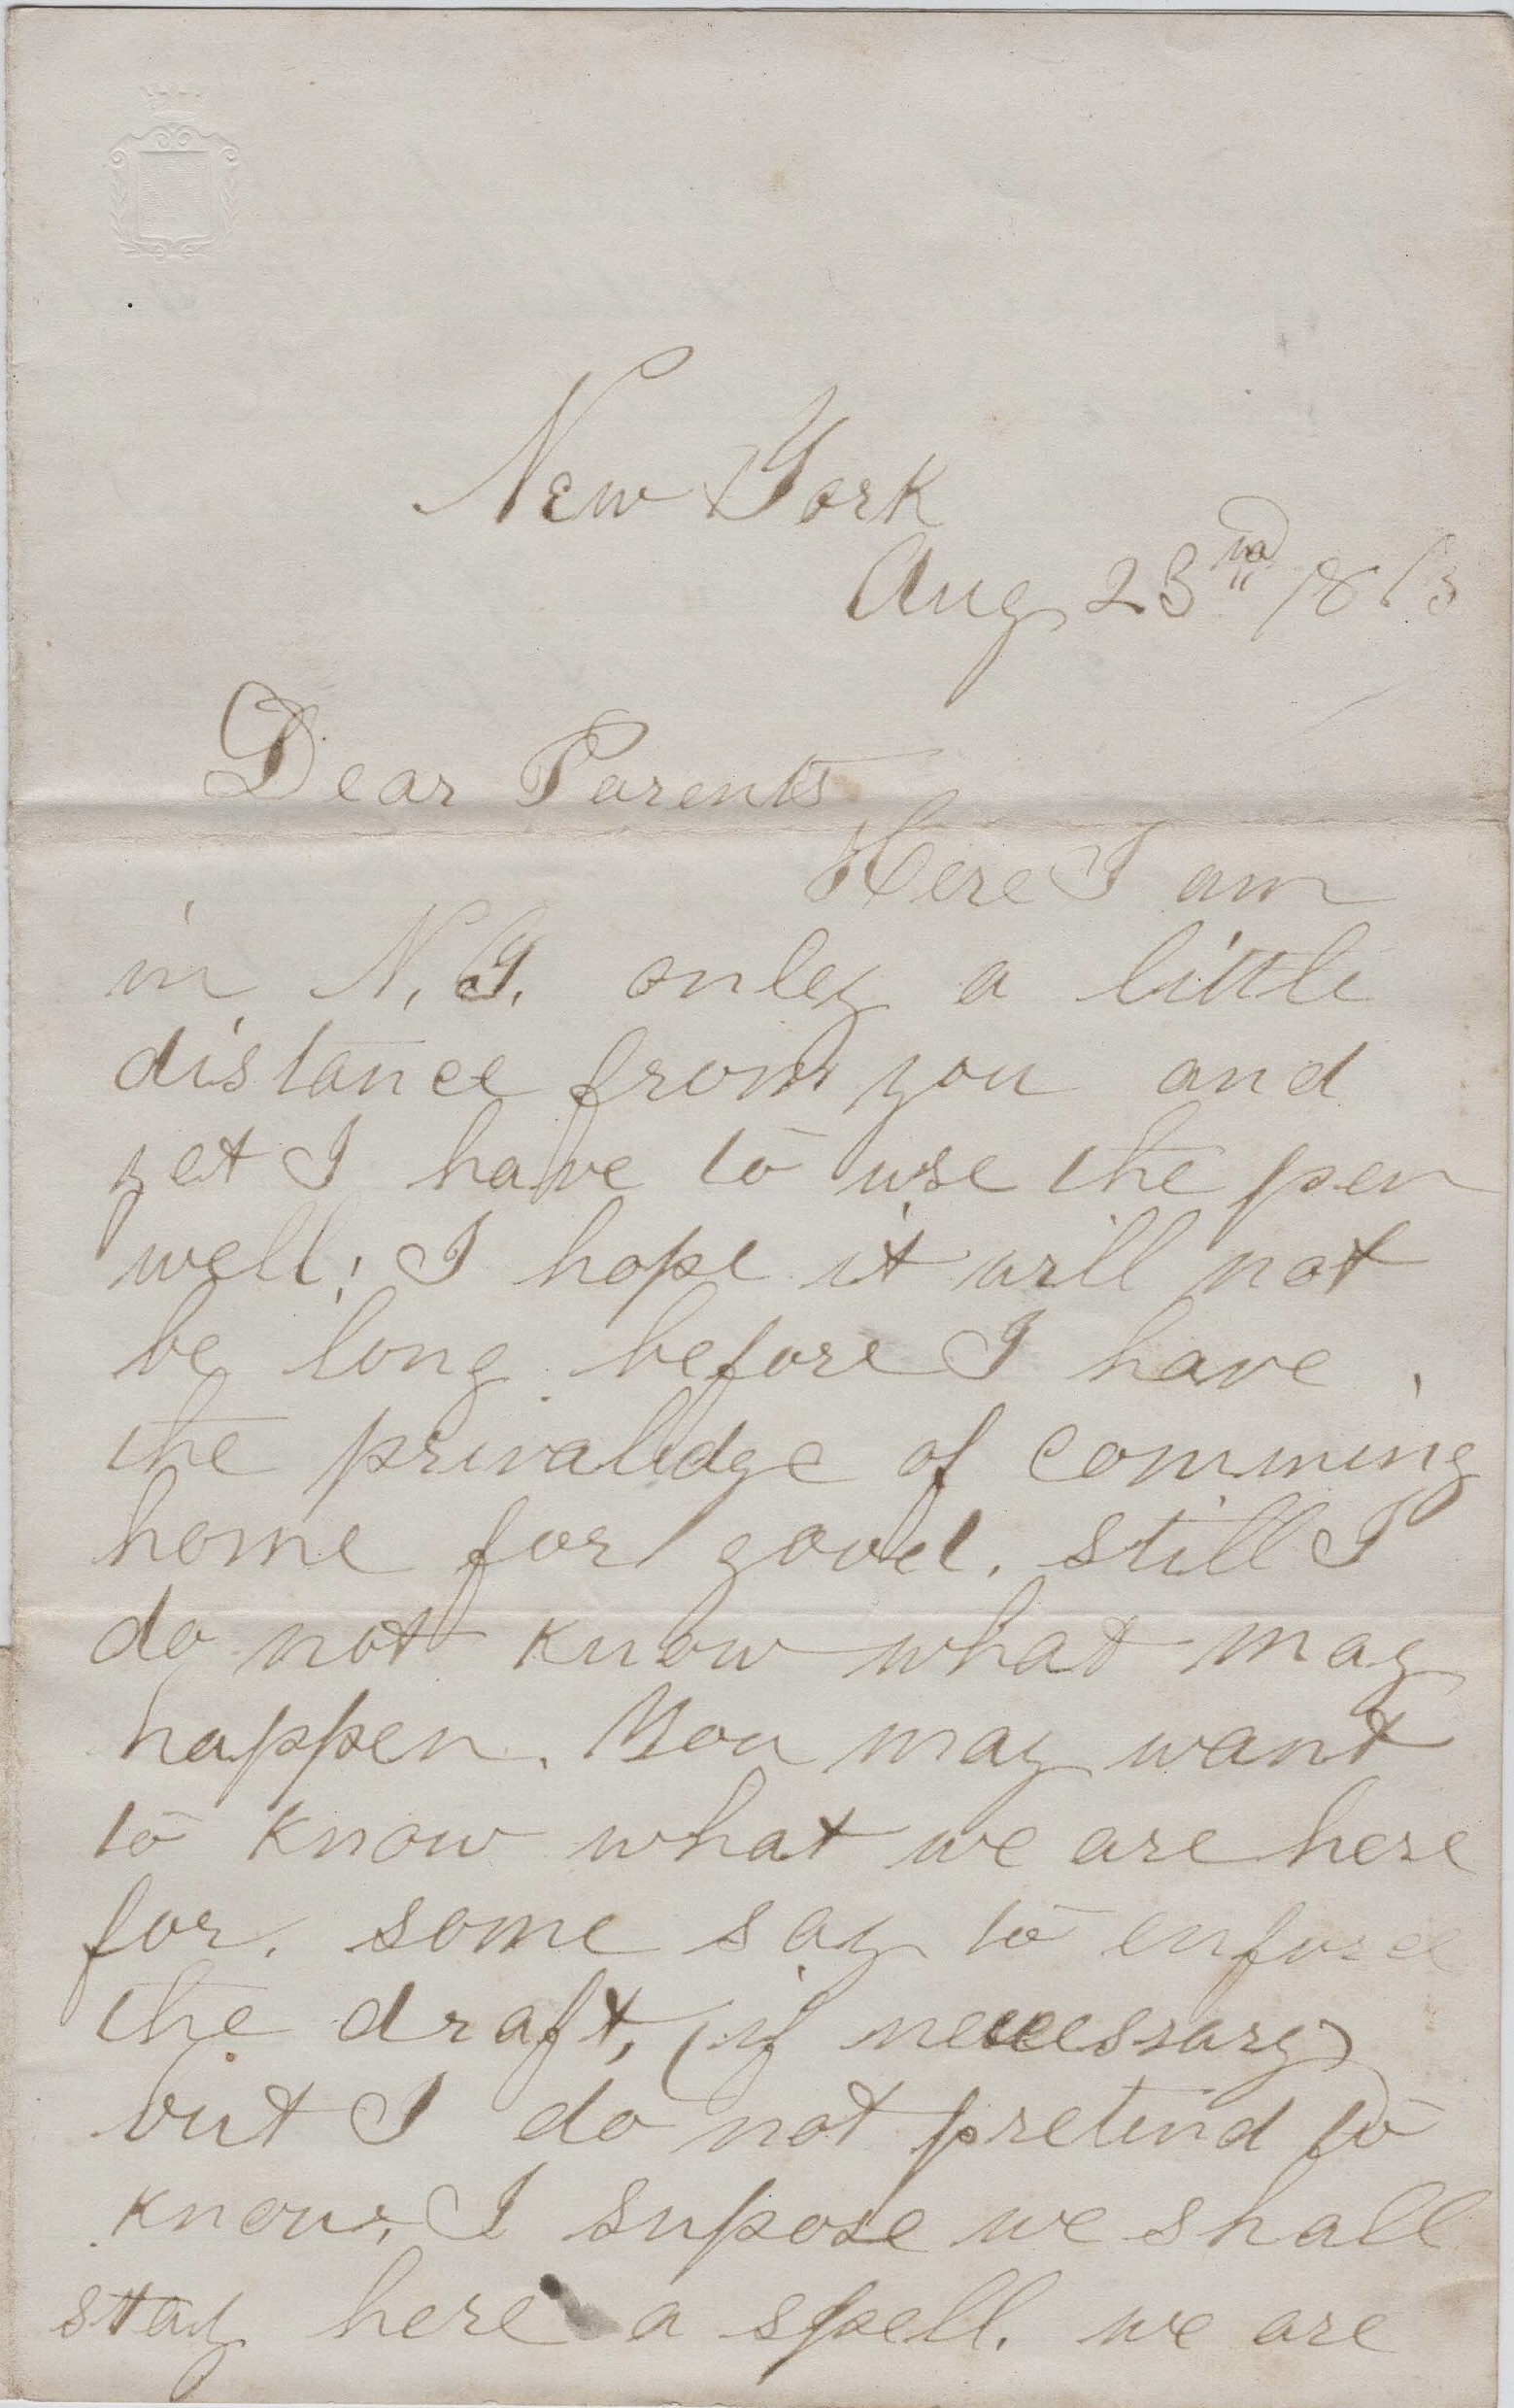 New York
Aug 23rd 1863
Dear Parents
Here I am
in N.Y. only a little
distance from you and
yet I have to use the pen
well; I hope it will not
be long before I have
the privalidge of comming
home for good. still I
do not know what may
happen. You may want
to know what we are here
for. some say to enforce
the draft, (if necessary)
but I do not pretend to
know, I supose we shall
stay here a spell. we are